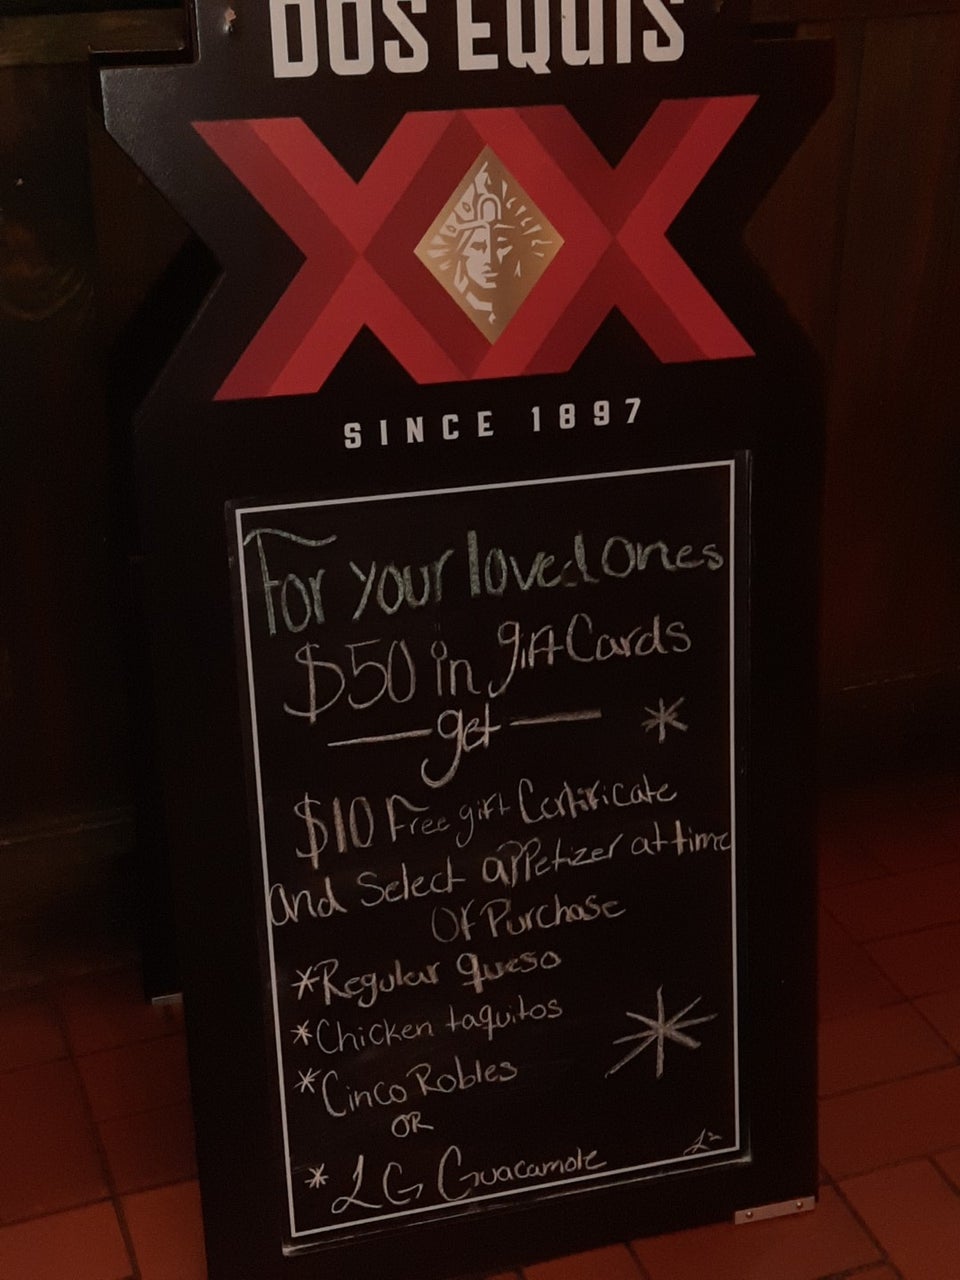 DOS EQUIS
XX
SINCE 1897
For your loved ones
$50 in gift Cards
get
$10 Free gift Certificate
and Select appetizer at time
Of Purchase
*Regular queso
*Chicken taquitos
*Cinco Robles
OR
* LG Guacamole